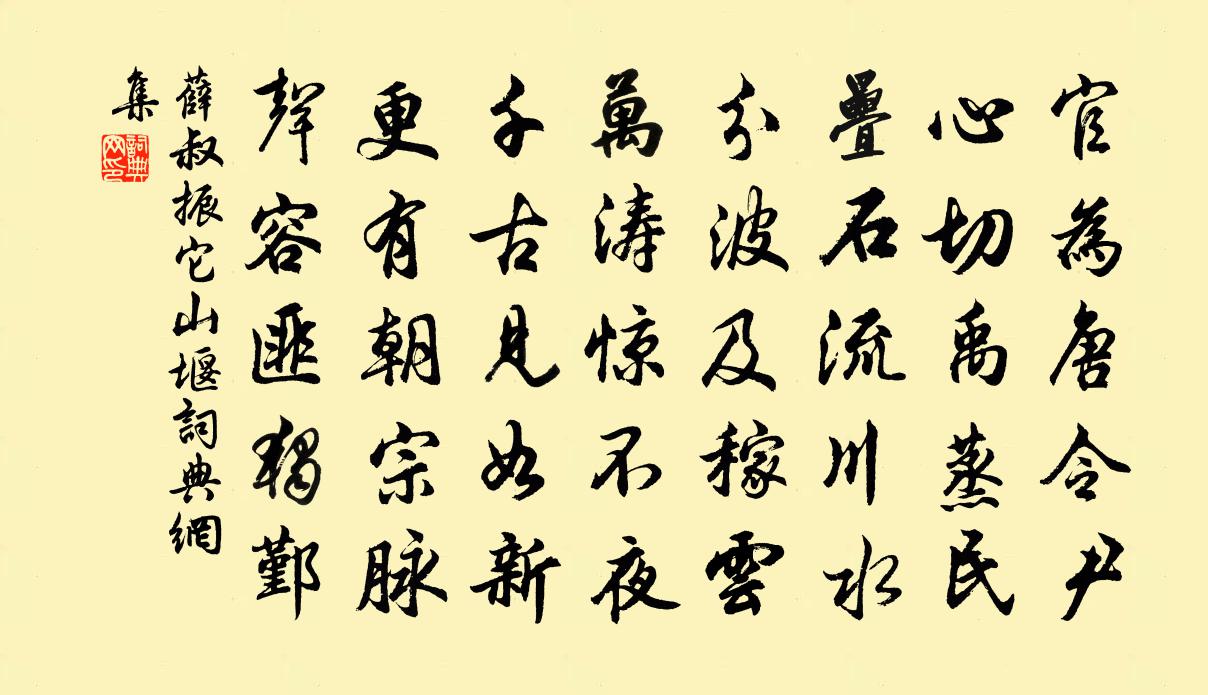 官為唐令尹
心切禹蒸民
疊石流川水
分波及稼雲
萬濤惊不夜
千古見如新
更有朝宗脉
聲容匪獨鄞
薛叔振它山堰詞典網
集
詞典網印